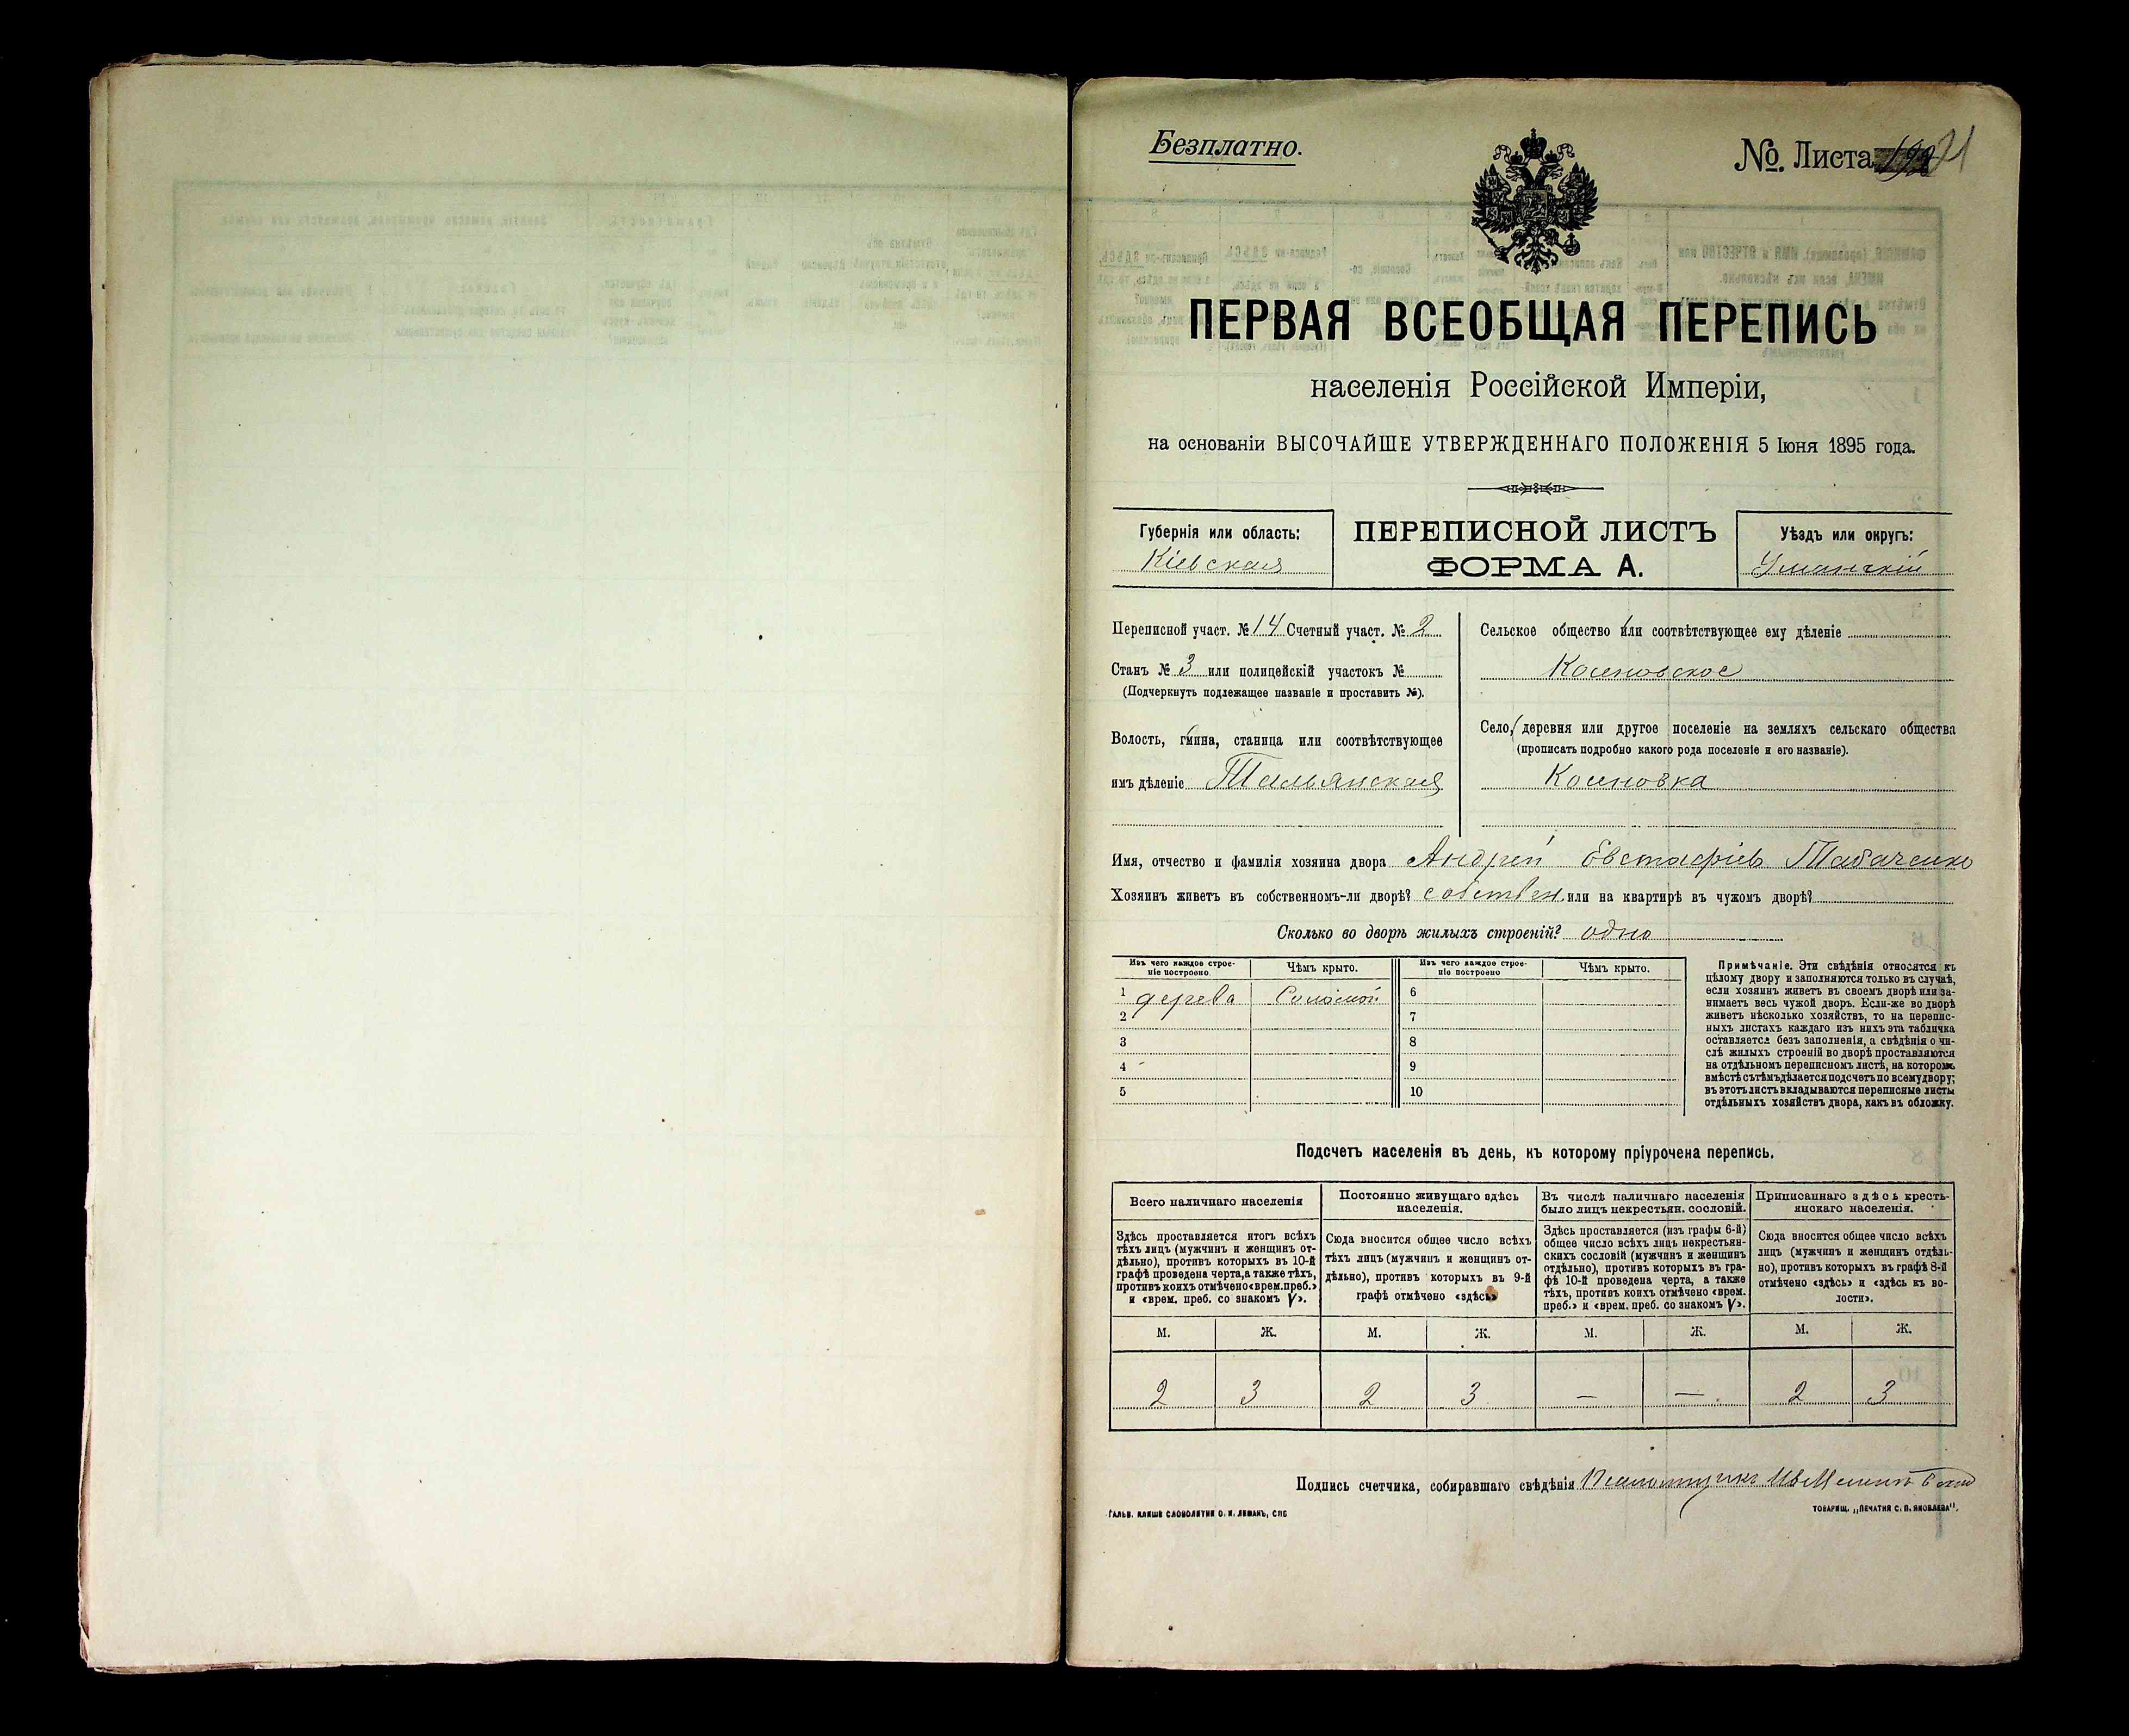 Безплатно.
№. Листа
ПЕРВАЯ ВСЕОБЩАЯ ПЕРЕПИСЬ
населенія Россійской Имперіи,
на основаніи ВЫСОЧАЙШЕ УТВЕРЖДЕННАГО ПОЛОЖЕНІЯ 5 Іюня 1895 года.
Губернія или область:
Кіевская
ПЕРЕПИСНОЙ ЛИСТЪ
ФОРМА А.
Уѣздъ или округъ:
Уманскій
Переписной участ. № 14 Счетный участ. № 2
Станъ № 3 или полицейскій участокъ №
(Подчеркнуть подлежащее названіе и проставить №).
Волость, гмина, станица или соотвѣтствующее
имъ дѣленіе Тальянская
Сельское общество или соотвѣтствующее ему дѣленіе
Косеновское
Село, деревня или другое поселеніе на земляхъ сельскаго общества
(прописать подробно какого рода поселеніе и его названіе).
Косеновка
Имя, отчество и фамилія хозяина двора Андрей Евстафіев Табаченко
Хозяинъ живетъ въ собственномъ-ли дворѣ? собствен. или на квартирѣ въ чужомъ дворѣ?
Сколько во дворѣ жилыхъ строеній? одно
Изъ чего каждое строе-
ніе построено
Чѣмъ крыто.
Изъ чего каждое строе-
ніе построено
Чѣмъ крыто.
1 дерева Соломой 6
2 7
3 8
4 9
5 10
Примѣчаніе. Эти свѣдѣнія относятся къ
цѣлому двору и заполняются только въ случаѣ,
если хозяинъ живетъ въ своемъ дворѣ или за-
нимаетъ весь чужой дворъ. Если-же во дворѣ
живетъ нѣсколько хозяйствъ, то на перепис-
ныхъ листахъ каждаго изъ нихъ эта табличка
оставляется безъ заполненія, а свѣдѣнія о чи-
слѣ жилыхъ строеній во дворѣ проставляются
на отдѣльномъ переписномъ листѣ, на которомъ
вмѣстѣ съ тѣмъ дѣлается подсчетъ по всему двору;
въ этотъ листъ вкладываются переписные листы
отдѣльныхъ хозяйствъ двора, какъ въ обложку.
Подсчетъ населенія въ день, къ которому пріурочена перепись.
Всего наличнаго населенія
Здѣсь проставляется итогъ всѣхъ
тѣхъ лицъ (мужчинъ и женщинъ от-
дѣльно), противъ которыхъ въ 10-й
графѣ проведена черта, а также тѣхъ,
противъ коихъ отмѣчено «врем. преб.»
и «врем. преб. со знакомъ V».
Постоянно живущаго здѣсь
населенія.
Сюда вносится общее число всѣхъ
тѣхъ лицъ (мужчинъ и женщинъ от-
дѣльно), противъ которыхъ въ 9-й
графѣ отмѣчено «здѣсь»
Въ числѣ наличнаго населенія
было лицъ некрестьян. сословій.
Здѣсь проставляется (изъ графы 6-й)
общее число всѣхъ лицъ некрестьян-
скихъ сословій (мужчинъ и женщинъ
отдѣльно), противъ которыхъ въ гра-
фѣ 10-й проведена черта, а также
тѣхъ, противъ коихъ отмѣчено «врем.
преб.» и «врем. преб. со знакомъ V».
Приписаннаго здѣсь кресть-
янскаго населенія.
Сюда вносится общее число всѣхъ
лицъ (мужчинъ и женщинъ отдѣль-
но), противъ которыхъ въ графѣ 8-й
отмѣчено «здѣсь» и «здѣсь къ во-
лости».
М. Ж. М. Ж. М. Ж. М. Ж.
2 3 2 3 — — 2 3
Подпись счетчика, собиравшаго свѣдѣнія
ГАЛЬВ. КЛИШЕ СЛОВОЛИТНИ О. И. ЛЕМАНЪ, СПБ
ТОВАРИЩ. „ПЕЧАТНЯ С. П. ЯКОВЛЕВА".